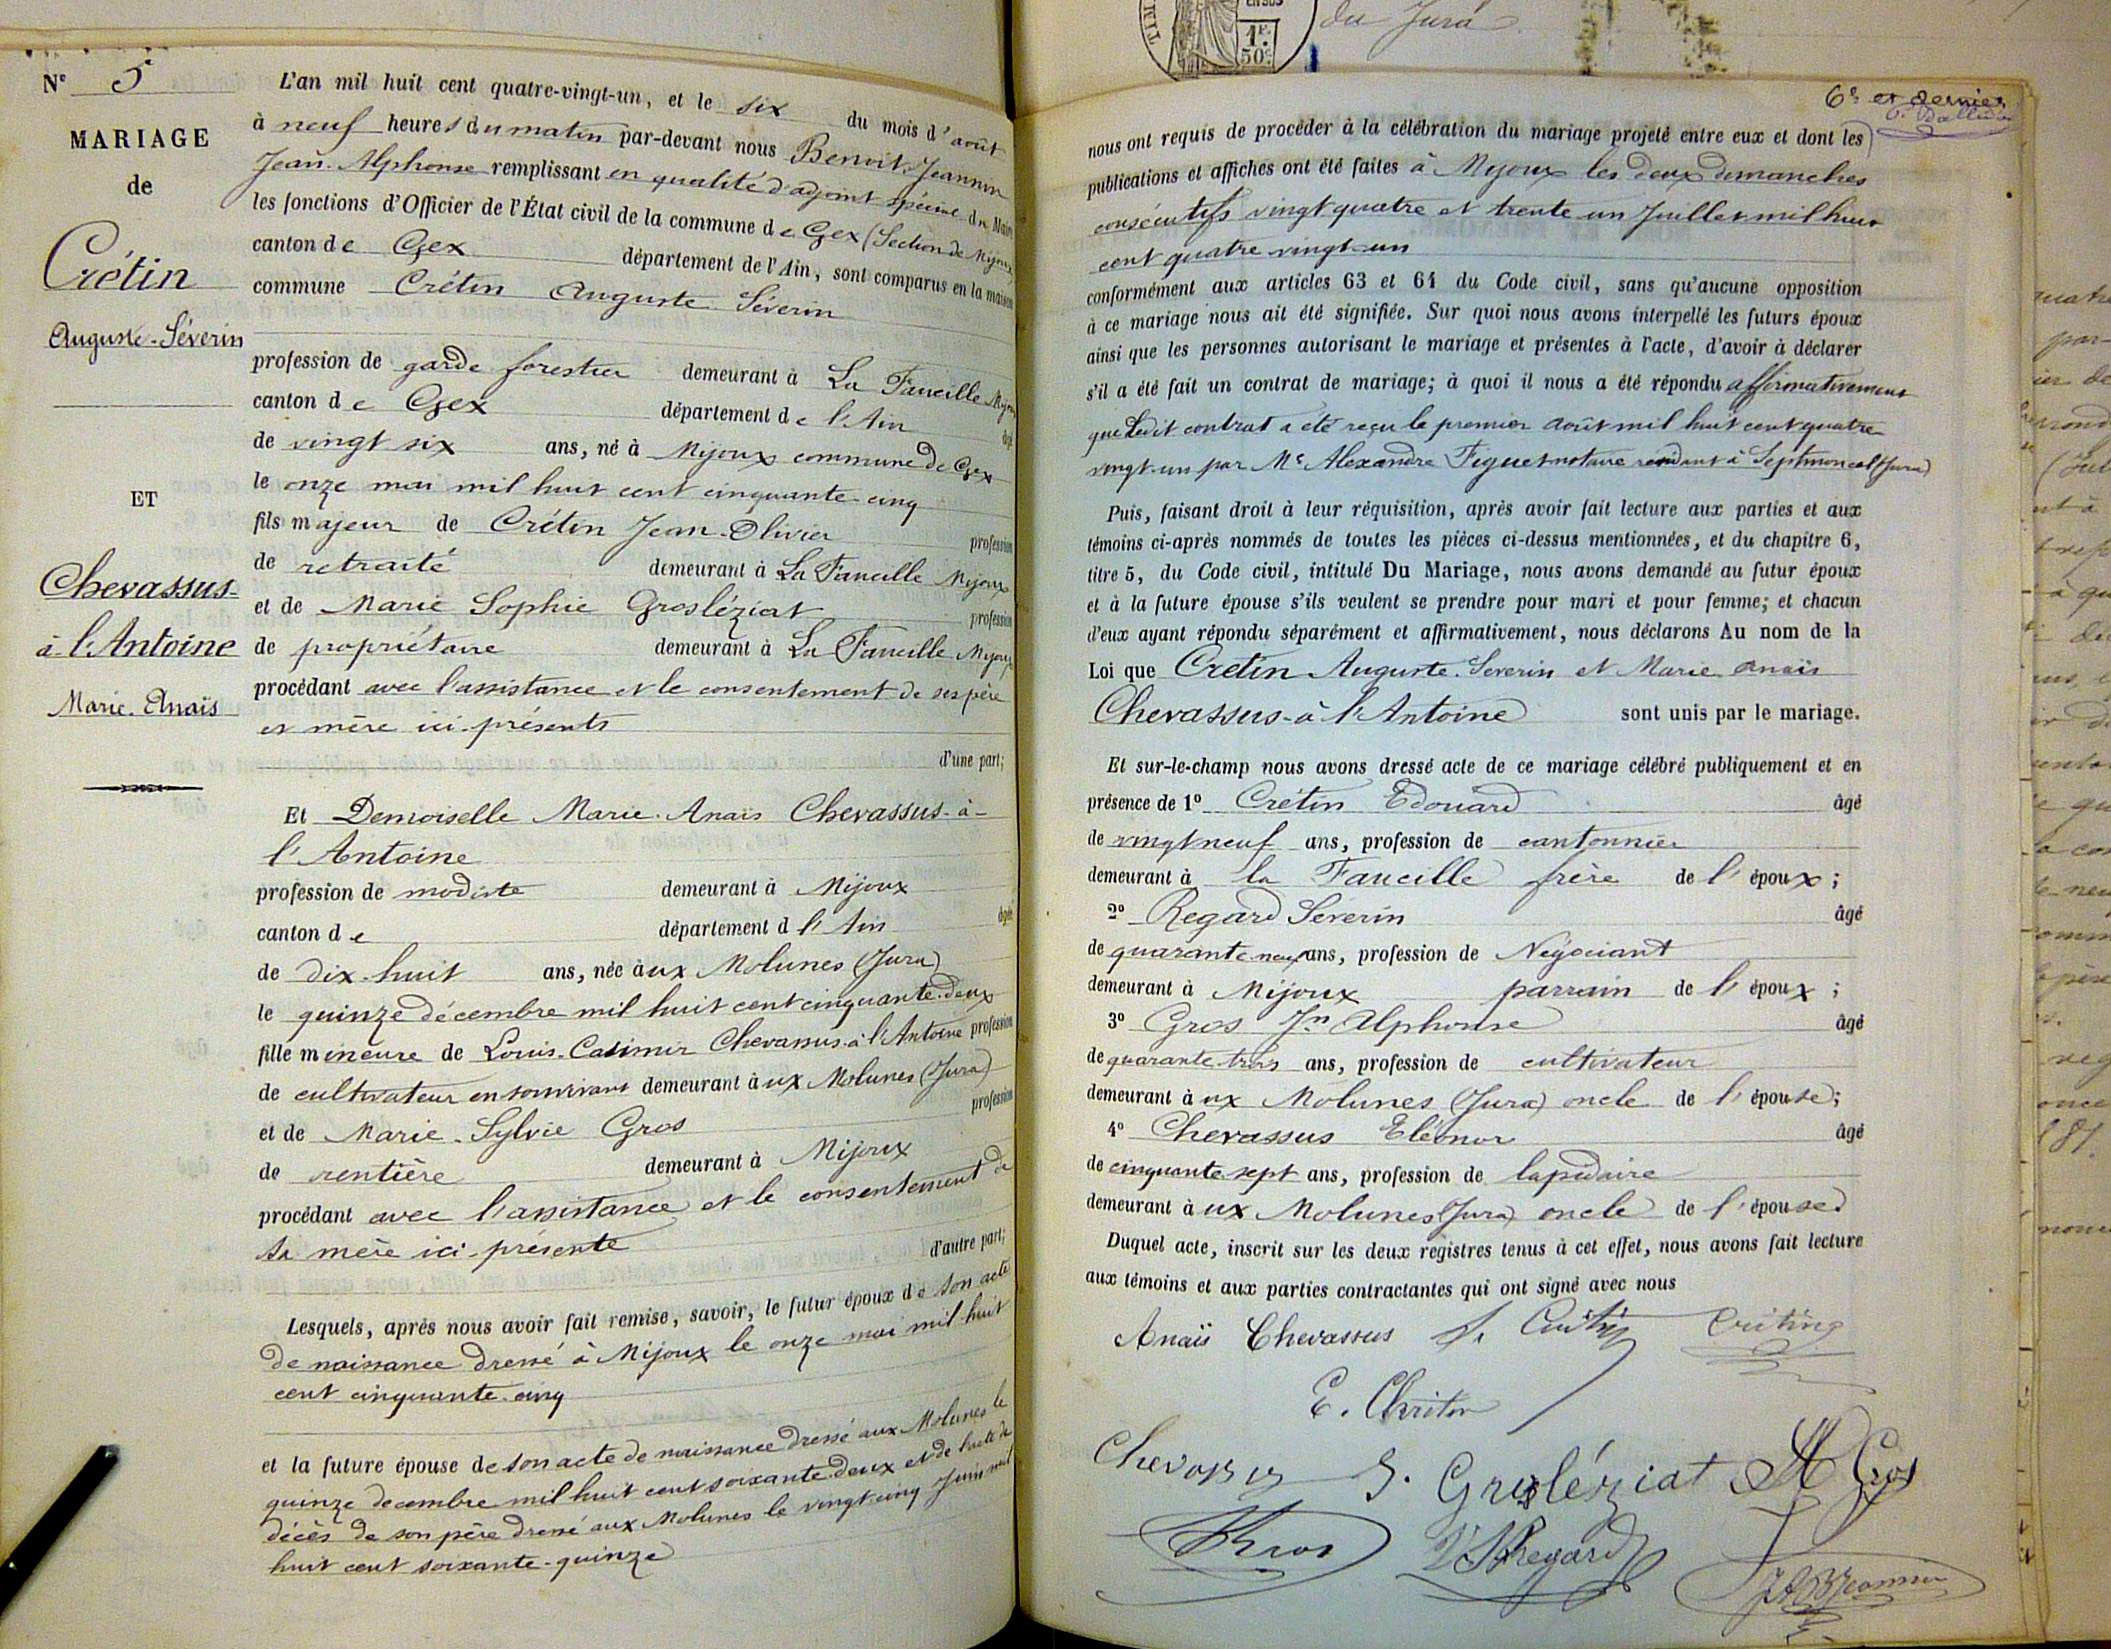 N° 5
MARIAGE
de
Crétin
Auguste-Séverin
ET
Chevassus-
à-l'Antoine
Marie-Anaïs
L'an mil huit cent quatre-vingt-un, et le six du mois d'août
à neuf heures du matin par-devant nous Benoit-Jeannin
Jean-Alphonse remplissant en qualité d'adjoint spécial du Maire
les fonctions d'Officier de l'État civil de la commune de Gex (Section de Mijoux)
canton de Gex département de l'Ain, sont comparus en la maison
commune Crétin Auguste Séverin
profession de garde forestier demeurant à La Faucille Mijoux
canton de Gex département de l'Ain âgé
de vingt six ans, né à Mijoux commune de Gex
le onze mai mil huit cent cinquante-cinq
fils majeur de Crétin Jean-Olivier profession
de retraité demeurant à La Faucille Mijoux
et de Marie Sophie Grosléziat profession
de propriétaire demeurant à La Faucille Mijoux
procédant avec l'assistance et le consentement de ses père
et mère ici-présents
d'une part;
Et Demoiselle Marie-Anaïs Chevassus-à-
l'Antoine
profession de modiste demeurant à Mijoux
canton de département d l'Ain âgée
de dix-huit ans, née à ux Molunes (Jura)
le quinze décembre mil huit cent cinquante-deux
fille mineure de Louis-Casimir Chevassus-à-l'Antoine profession
de cultivateur en son vivant demeurant à ux Molunes (Jura)
et de Marie-Sylvie Gros profession
de rentière demeurant à Mijoux
procédant avec l'assistance et le consentement de
sa mère ici-présente
d'autre part;
Lesquels, après nous avoir fait remise, savoir, le futur époux de son acte
de naissance dressé à Mijoux le onze mai mil-huit
cent cinquante-cinq
et la future épouse de son acte de naissance dressé aux Molunes le
quinze decembre mil huit cent soixante-deux et de l'acte de
décès de son père dressé aux Molunes le vingt-cinq Juin mil
huit cent soixante-quinze
1F.
50c
du Jura
6e et dernier
nous ont requis de procéder à la célébration du mariage projeté entre eux et dont les
publications et affiches ont été faites à Mijoux les deux dimanches
consécutifs vingt quatre et trente un Juillet mil huit
cent quatre vingt-un
conformément aux articles 63 et 64 du Code civil, sans qu'aucune opposition
à ce mariage nous ait été signifiée. Sur quoi nous avons interpellé les futurs époux
ainsi que les personnes autorisant le mariage et présentes à l'acte, d'avoir à déclarer
s'il a été fait un contrat de mariage; à quoi il nous a été répondu affirmativement
que ledit contrat a été reçu le premier août mil huit cent quatre
vingt-un par Me Alexandre Figuet notaire résidant à Septmoncel (Jura)
Puis, faisant droit à leur réquisition, après avoir fait lecture aux parties et aux
témoins ci-après nommés de toutes les pièces ci-dessus mentionnées, et du chapitre 6,
titre 5, du Code civil, intitulé Du Mariage, nous avons demandé au futur époux
et à la future épouse s'ils veulent se prendre pour mari et pour femme; et chacun
d'eux ayant répondu séparément et affirmativement, nous déclarons Au nom de la
Loi que Cretin Auguste-Severin et Marie Anaïs
Chevassus-à-l'Antoine sont unis par le mariage.
Et sur-le-champ nous avons dressé acte de ce mariage célébré publiquement et en
présence de 1° Crétin Edouard âgé
de vingt neuf ans, profession de cantonnier
demeurant à la Faucille frère de l'époux;
2° Regard Séverin âgé
de quarante-neuf ans, profession de Négociant
demeurant à Mijoux parrain de l'époux;
3° Gros Jn Alphonse âgé
de quarante-trois ans, profession de cultivateur
demeurant à ux Molunes (Jura) oncle de l'épouse;
4° Chevassus Eléonor âgé
de cinquante-sept ans, profession de lapidaire
demeurant à ux Molunes (Jura) oncle de l'épouse.
Duquel acte, inscrit sur les deux registres tenus à cet effet, nous avons fait lecture
aux témoins et aux parties contractantes qui ont signé avec nous
Anaïs Chevassus
Chevassus S. Grosléziat A Gros
Gros Regard
JABJeannin